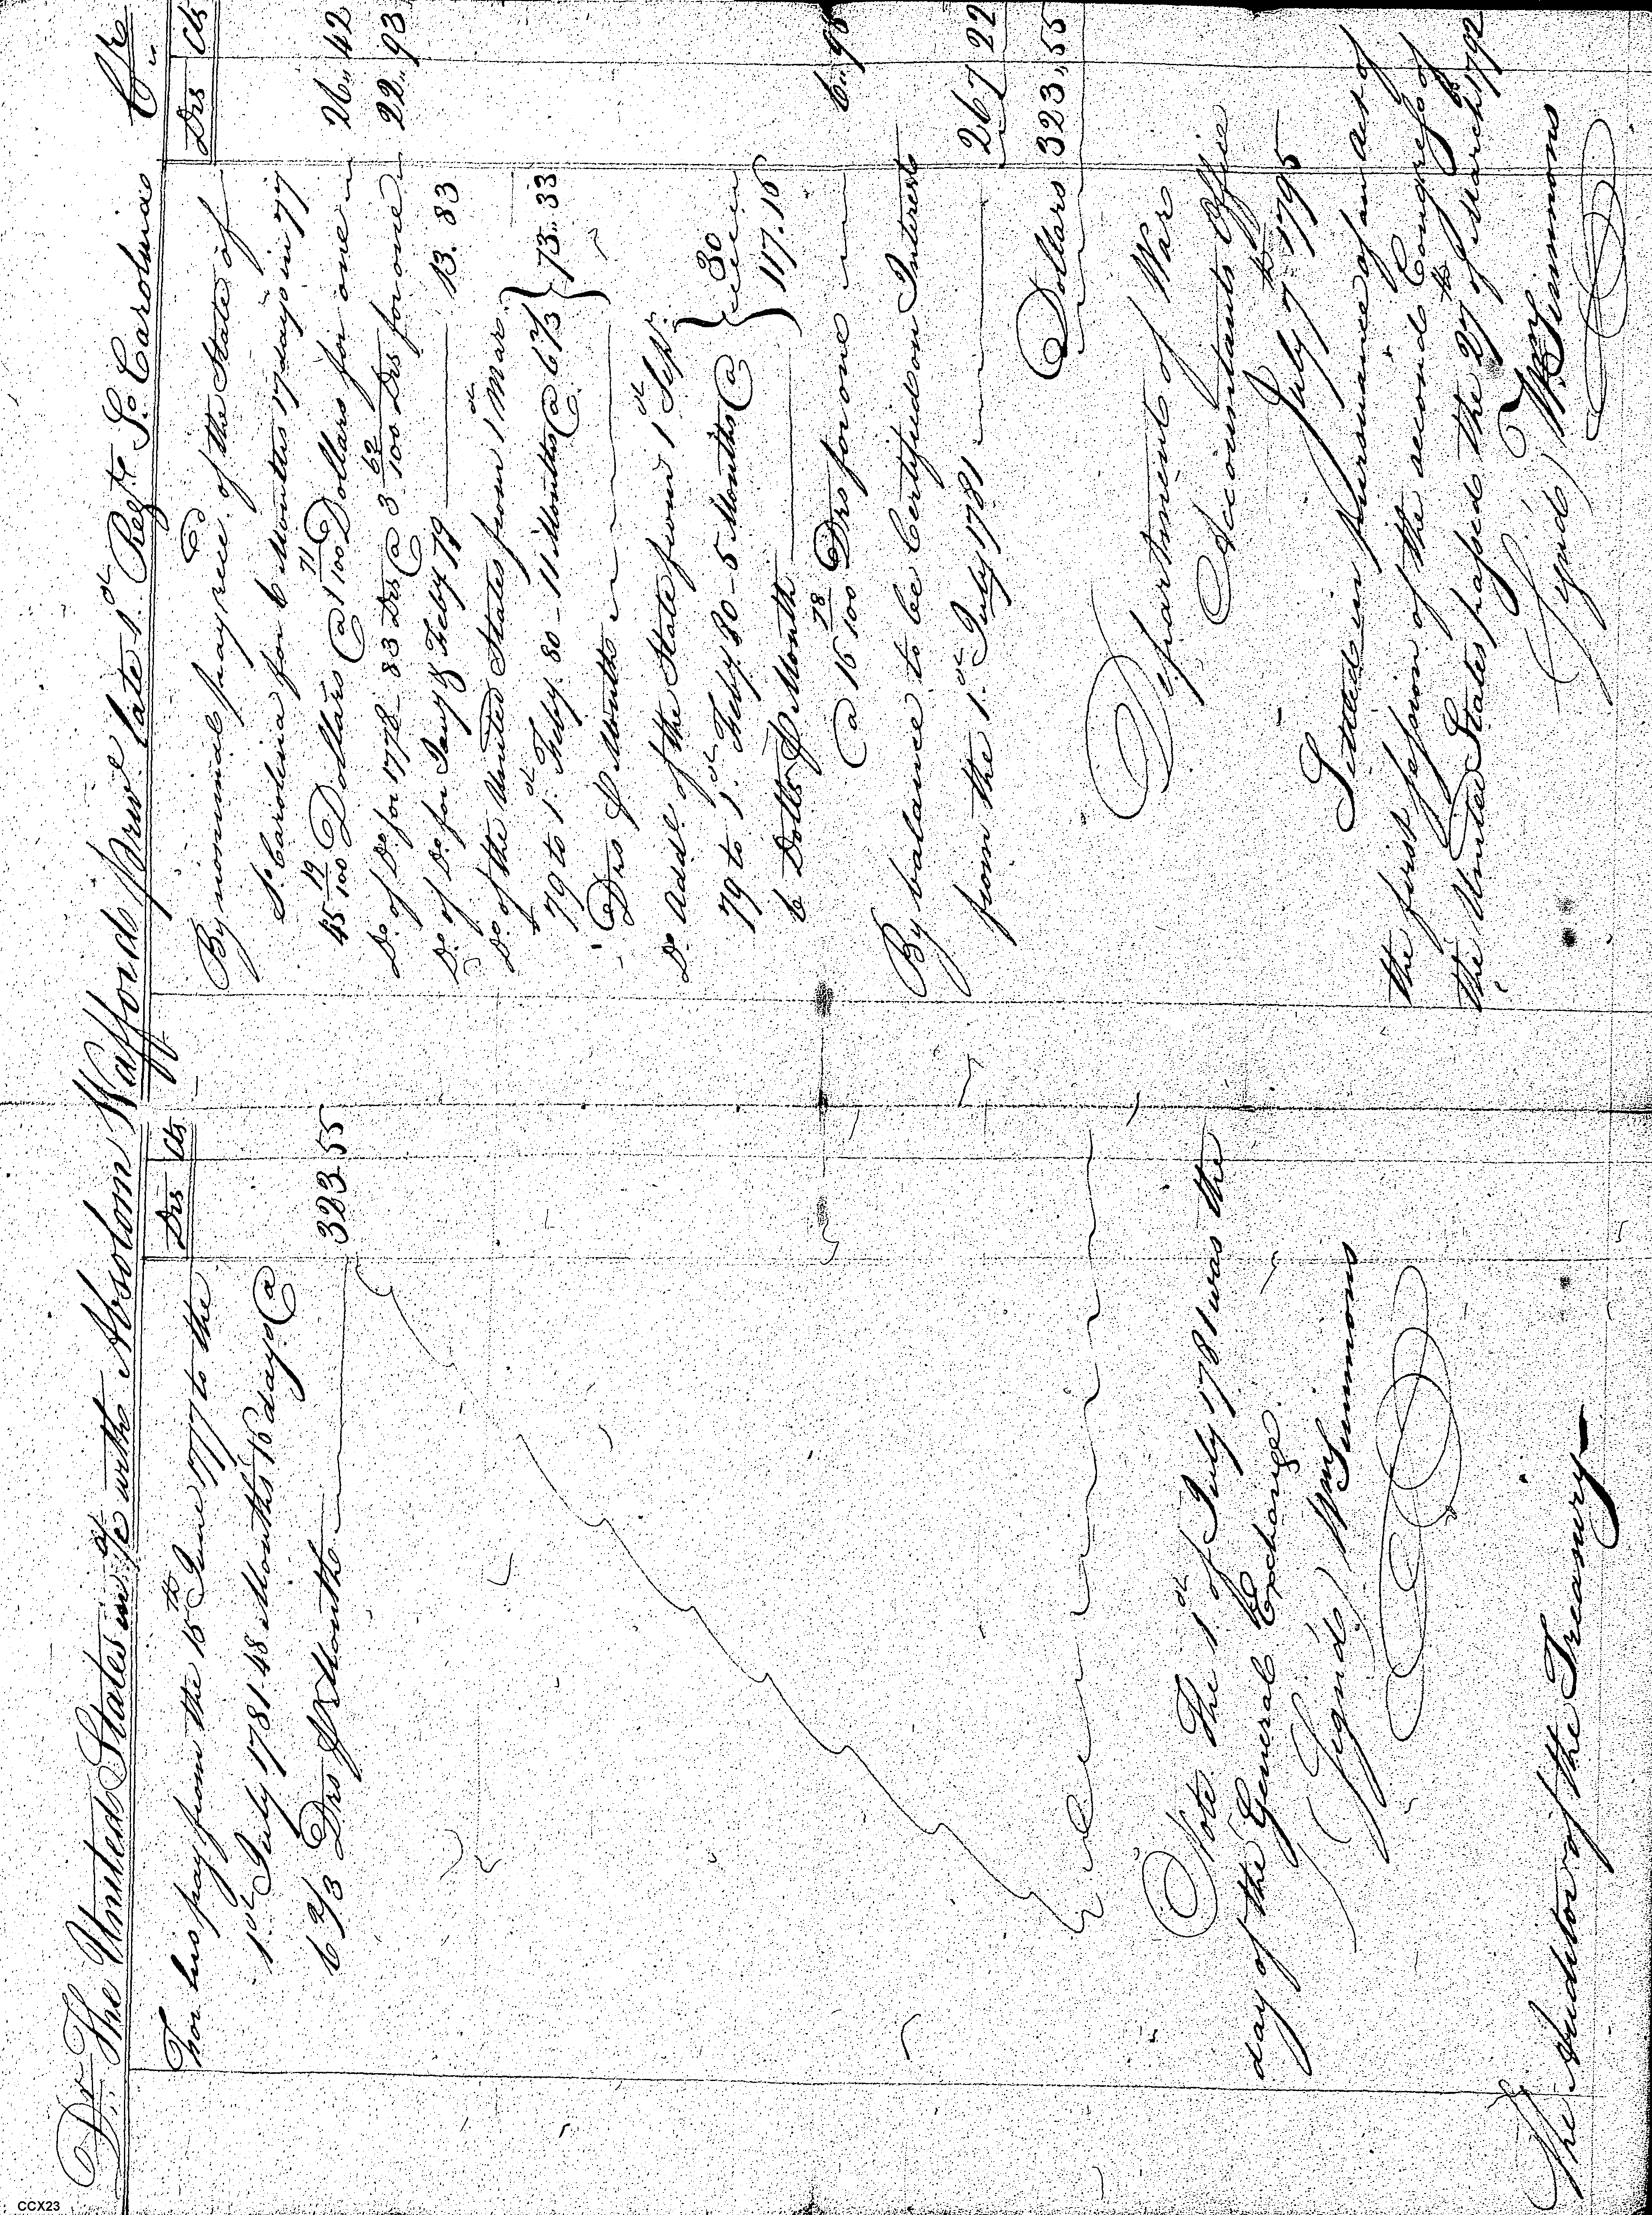 Dr. The United States in a/c with Absolom Wafford private late 1st Regt. So. Carolina Cr.
Drs Cts
For his pay from the 15th June 1777 to the
1st July 1781. 48 Months 16 days @
6 2/3 Drs ℔ Month 323.55
Note. The 1st of July 1781 was the
day of the General Exchange.
(Signd) Wm Simmons
The Auditor of the Treasury
Drs Cts
By nominal pay recd. of the State of
So. Carolina for 6 Months 17 days in 77
45 19/100 Dollars @ 1 71/100 Dollars for one 26..42
Do. of Do. for 1778 - 83 Drs @ 3 62/100 Drs for one 22..93
Do. of Do. for Jany & Feby 79 13.83
Do. of the United States from 1st Mar.
79 to 1st Feby. 80 - 11 Months @ 6 2/3 } 73..33
Drs ℔ Month
Do. Addl. of the State from 1st Sepr.
79 to 1st Feby. 80 - 5 Months @ } 30
6 Dolls ℔ Month 117.16
@ 16 78/100 Drs for one 6..98
By balance to be Certified on Interest
from the 1st July 1781 267 22
Dollars 323,,55
Department of War
Accountants Office
July 7th 1795
Settled in pursuance of an Act of
the first session of the second Congress of
the United States passed the 27th of March 1792
(Signd) Wm Simmons
CCX23